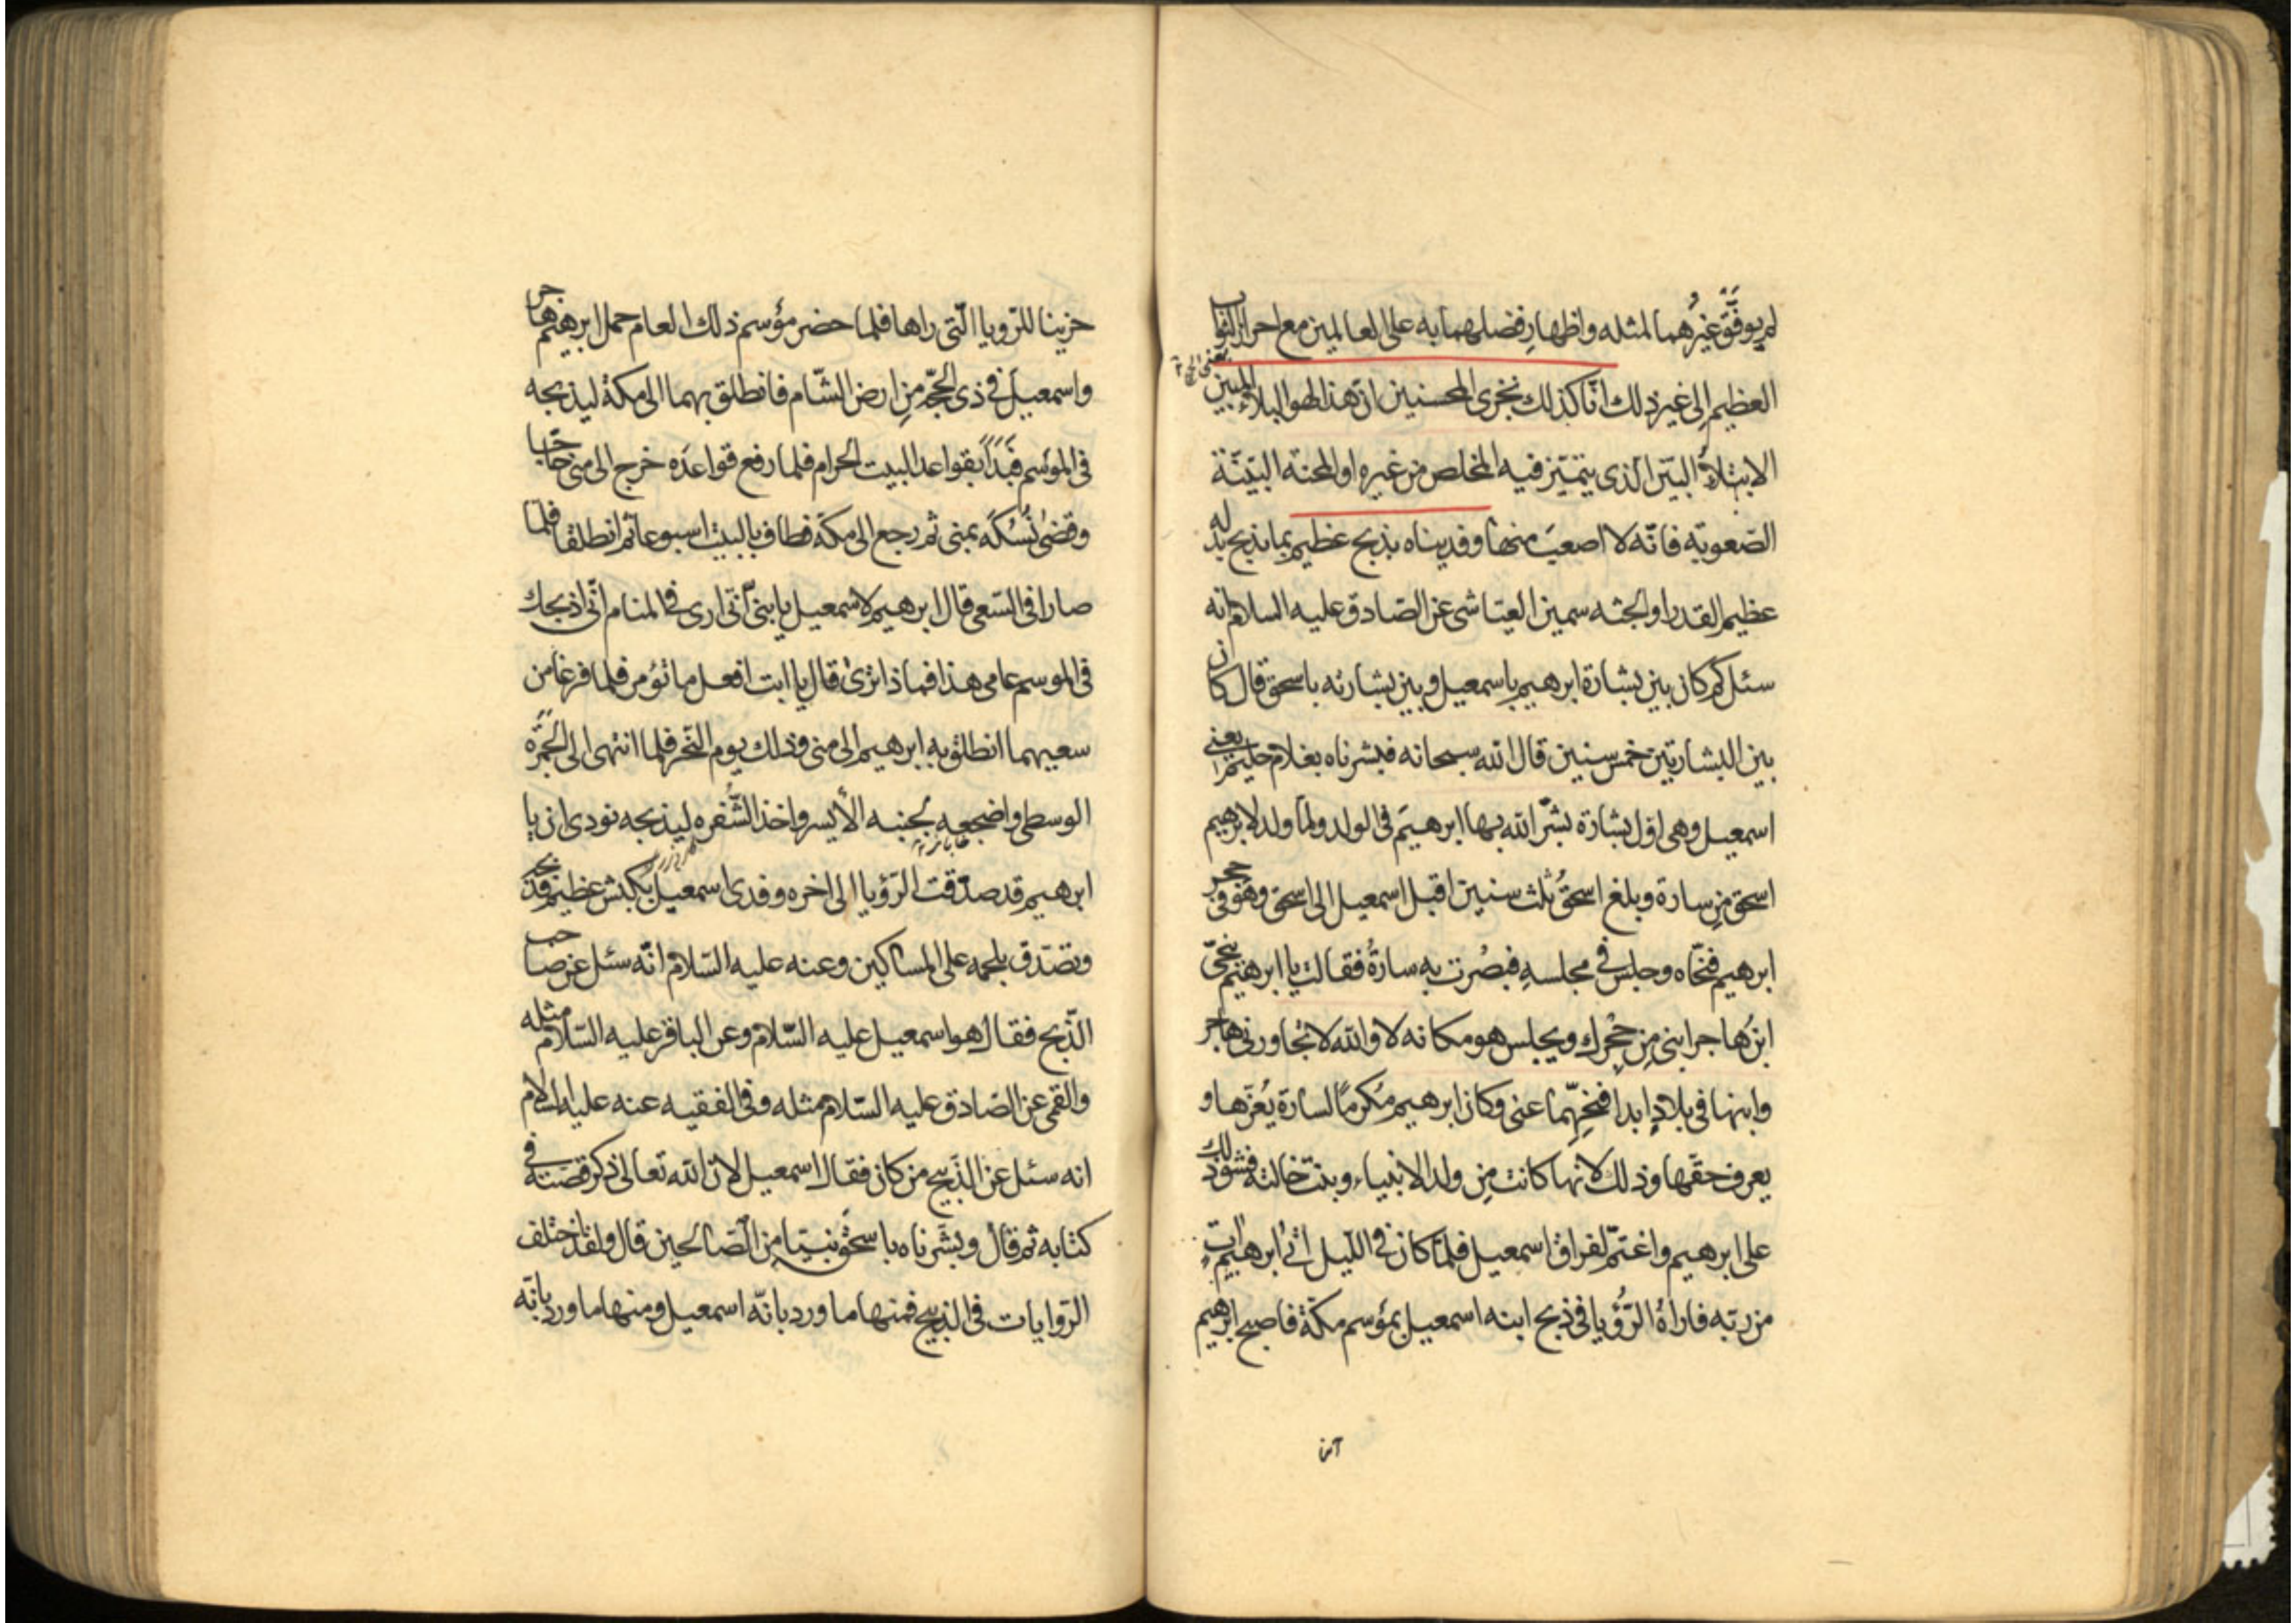 لم يوفّق غيرُهما لمثله واظهارِ فضلهما به على العالمين مع احراز الثواب
العظيم الى غير ذلك انّا كذلك نجزى المحسنين انّ هذا لهو البلاءُ المبين
الابتلاءُ البيّن الّذى يتميّز فيه المخلص من غيره او المحنة البيّنة
الصّعوبة فانّه لا اصعبَ منها وفديناه بذبح عظيم بما يذبح بدله
عظيم القدر او الجثه سمين العيّاشى عن الصّادق عليه السلام انه
سئل كم كان بين بشارة ابرهيم باسمعيل وبين بشارته باسحق قال كان
بين البشارتين خمس سنين قال الله سبحانه فبشرناه بغلام حليم يعنى
اسمعيل وهى اوّل بشارة بشّر الله بها ابرهيمَ فى الولد ولمّا ولد لابرهيم
اسحق مِن سارة وبلغ اسحقُ ثلث سنين اقبل اسمعيل الى اسحق وهو فى حجر
ابرهيم فنحّاه وجلس فى مجلسهِ فبصُرت به سارةُ فقالت يا ابرهيم ينحّى
ابنُ هاجر ابنى مِن حِجْرِك ويجلس هو مكانه لا والله لا تجاورنى هاجر
وابنها فى بلادٍ ابدا فنحّهما عنى وكان ابرهيم مُكرِماً لسارة يُعزّها و
يعرف حقّها وذلك لانها كانت مِن ولد الانبياء وبنت خالته فشقّ ذلك
على ابرهيم واغتمّ لفراق اسمعيل فلمّا كان فى اللّيل اتى ابرهيم اتٍ
من ربّه فاراهُ الرّؤيا فى ذبح ابنه اسمعيل بمؤسم مكّة فاصبح ابرهيم
حزينا للرّويا الّتى راها فلما حضر مؤسم ذلك العام حمل ابرهيم هاجر
واسمعيلَ فى ذى الحجّه مِن ارض الشّام فانطلق بهما الى مكة ليذبحه
فى الموسم فبَدَأ بقواعد البيت الحرام فلما رفع قواعدَه خرج الى منى حاجّا
وقضىٰ نُسُكَه بمنى ثم رجع الى مكّة فطاف بالبيت اسبوعا ثم انطلقا فلمّا
صارا فى السّعى قال ابرهيم لاسمعيل يا بنىّ انّى ارى فى المنام انّى اذبحك
فى الموسم عامى هذا فما ذا ترىٰ قال يا ابت افعل ما تؤمر فلما فرغا من
سعيهما انطلق به ابرهيم الى منى وذلك يوم النّحر فلما انتهى الى الجَمرَه
الوسطى واضجعه بجنبه الأيسر واخذ الشّفره ليذبحه نودى ان يا
ابرهيم قد صدّقت الرّؤيا الى اخره وفدى اسمعيل بكبش عظيم فذبحه
وتصدّق بلحمه على المساكين وعنه عليه السّلام انّه سئل عن صاحب
الذّبح فقال هو اسمعيل عليه السّلام وعن الباقر عليه السّلام مثله
والقمى عن الصّادق عليه السّلام مثله وفى الفقيه عنه عليه السلام
انه سئل عن الذّبيح من كان فقال اسمعيل لانّ الله تعالى ذكر قصّته فى
كتابه ثم قال وبشّرناه باسحق نبيّا مِن الصّالحين قال ولقد اختلف
الرّوايات فى الذبيح فمنها ما ورد بانّه اسمعيل ومنها ما ورد بانّه